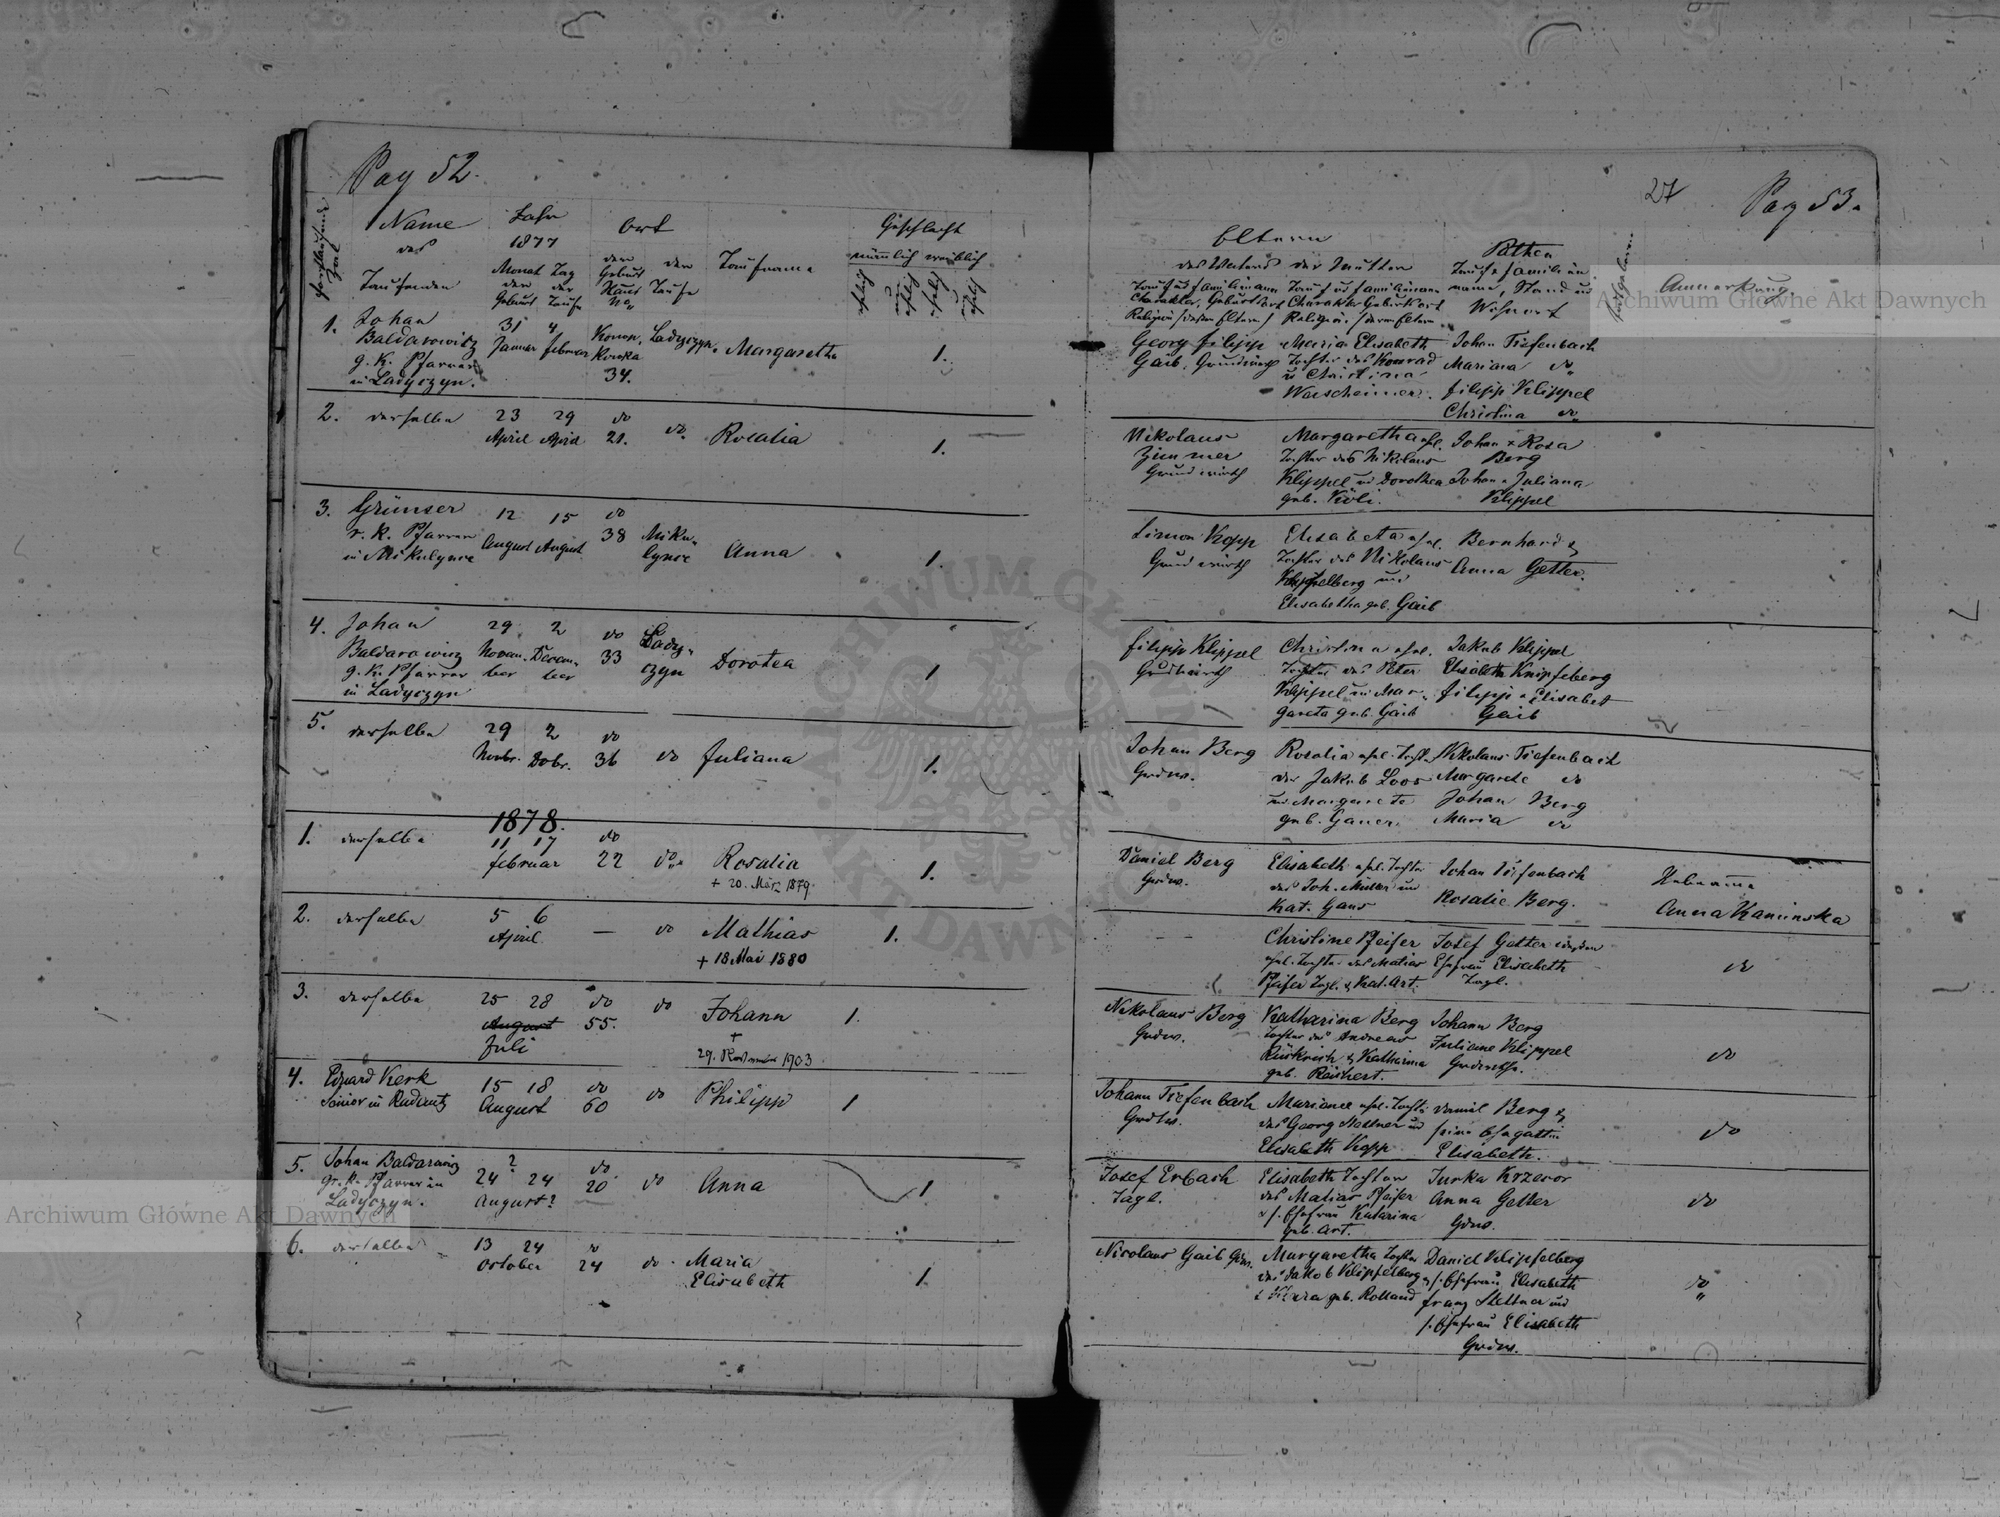 Pag 52.
Name
des
Taufenden
Jahr
1877
Monat Tag
der der
Geburt Taufe
Ort
der
Geburt
Haus
No
der
Taufe
Taufname
Geschlecht
männlich weiblich
1. Johan
Baldarowicz
g. k. Pfarrer
in Ladyczyn.
31 4
Januar Februar
34.
Ladyczyn.
Margaretha
1.
2. derselbe
23 29
April April
do
21.
do.
Rosalia
1.
3. Grünser
r. k. Pfarrer
in Mikulynce
12 15
August August
do
38
Miku-
lynce
Anna
1.
4. Johan
Baldarowicz
g. k. Pfarrer
in Ladyczyn
29 2
Novem- Decem-
ber ber
do
33
Lady-
czyn
Dorotea
1
5. derselbe
29 2
Novbr. Dobr.
do
36
do
Juliana
1.
1878.
1. derselbe
11 17
Februar
do
22
do
Rosalia
+ 20. März 1879.
1.
2. derselbe
5 6
April
—
do
Mathias
+ 18 Mai 1880
1.
3. derselbe
25 28
August
Juli
do
55.
do
Johann
+
29. November 1903
1.
4. Eduard Kerk
Senior in Radautz
15 18
August
do
60
do
Philipp
1
5. Johan Baldarowicz
gr. k. Pfarrer in
Ladyczyn.
24 ? 24
August?
do
20
do
Anna
1
6. derselbe
13 24
October
24
do
Maria
Elisabeth
1
27
Pag 53.
Eltern
des Vaters der Mutter
Pathen
Wohnort
Anmerkung.
Georg Filipp
Gaib, Grundwirth
Maria Elisabeth
Tochter des Konrad
u Christina
Johan Tiefenbach
Mariana do
Filipp Klippel
Christina do
Nikolaus
Zimmer
Grundwirth
Margaretha ehl.
Tochter des Nikolaus
Klippel u Dorothea
geb. Köli.
Johan + Rosa
Berg
Johan + Juliana
Klippel
Simon Kopp
Grundwirth
Elisabeta ehl.
Tochter des Nikolaus
Elisabetha geb. Gaib
Bernhard &
Anna Getter.
Filipp Klippel
Grundwirth
Christina ehel.
Tochter des Peter
Klippel u Mar-
gareta geb. Gaib
Jakob Klippel
Elisabeth Knipfelberg
Filipp u Elisabet
Gaib
Johan Berg
Grdw.
Rosalia ehel. Tocht.
des Jakob Loos
u Margareta
geb. Gauer.
Nikolaus Tiefenbach
Margarete do
Johan Berg
Maria do
Daniel Berg
Grdw.
Elisabeth ehel. Tochter
des Joh. Müller und
Kat. Gans
Johan Tiefenbach
Rosalie Berg.
Hebamme
Anna Kaminska
- -
Christine Pfeifer
ehel. Tochter des Matias
Pfeifer Tagl. & Kat. Art.
Josef Getter
Ehefrau Elisabeth
Tagl.
do
Nikolaus Berg
Grdw.
Katharina Berg
Tochter des Andreas
Rückrich & Katharina
geb. Reichert.
Johann Berg
Juliane Klippel
do
Johann Tiefenbach
Mariane ehel. Tocht.
des Georg Mettner und
Elisabeth Kopp
Daniel Berg &
seine Ehegattin
Elisabeth.
do
Josef Erbach
Tagl.
Elisabeth Tochter
des Matias Pfeifer
u s. Ehefrau Katarina
geb. Art.
Jurko Krzeror
Anna Getter
Grdw.
do
Nicolaus Gaib Grdw.
Margaretha Tochter
des Jakob Klipfelberg
geb. Rolland
Daniel Klipfelberg
u s. Ehefrau Elisabeth
Franz Mettner und
s. Ehefrau Elisabeth
Grdw.
do
Archiwum Główne Akt Dawnych
Archiwum Główne Akt Dawnych
ARCHIWUM GŁÓWNE
AKT DAWNYCH